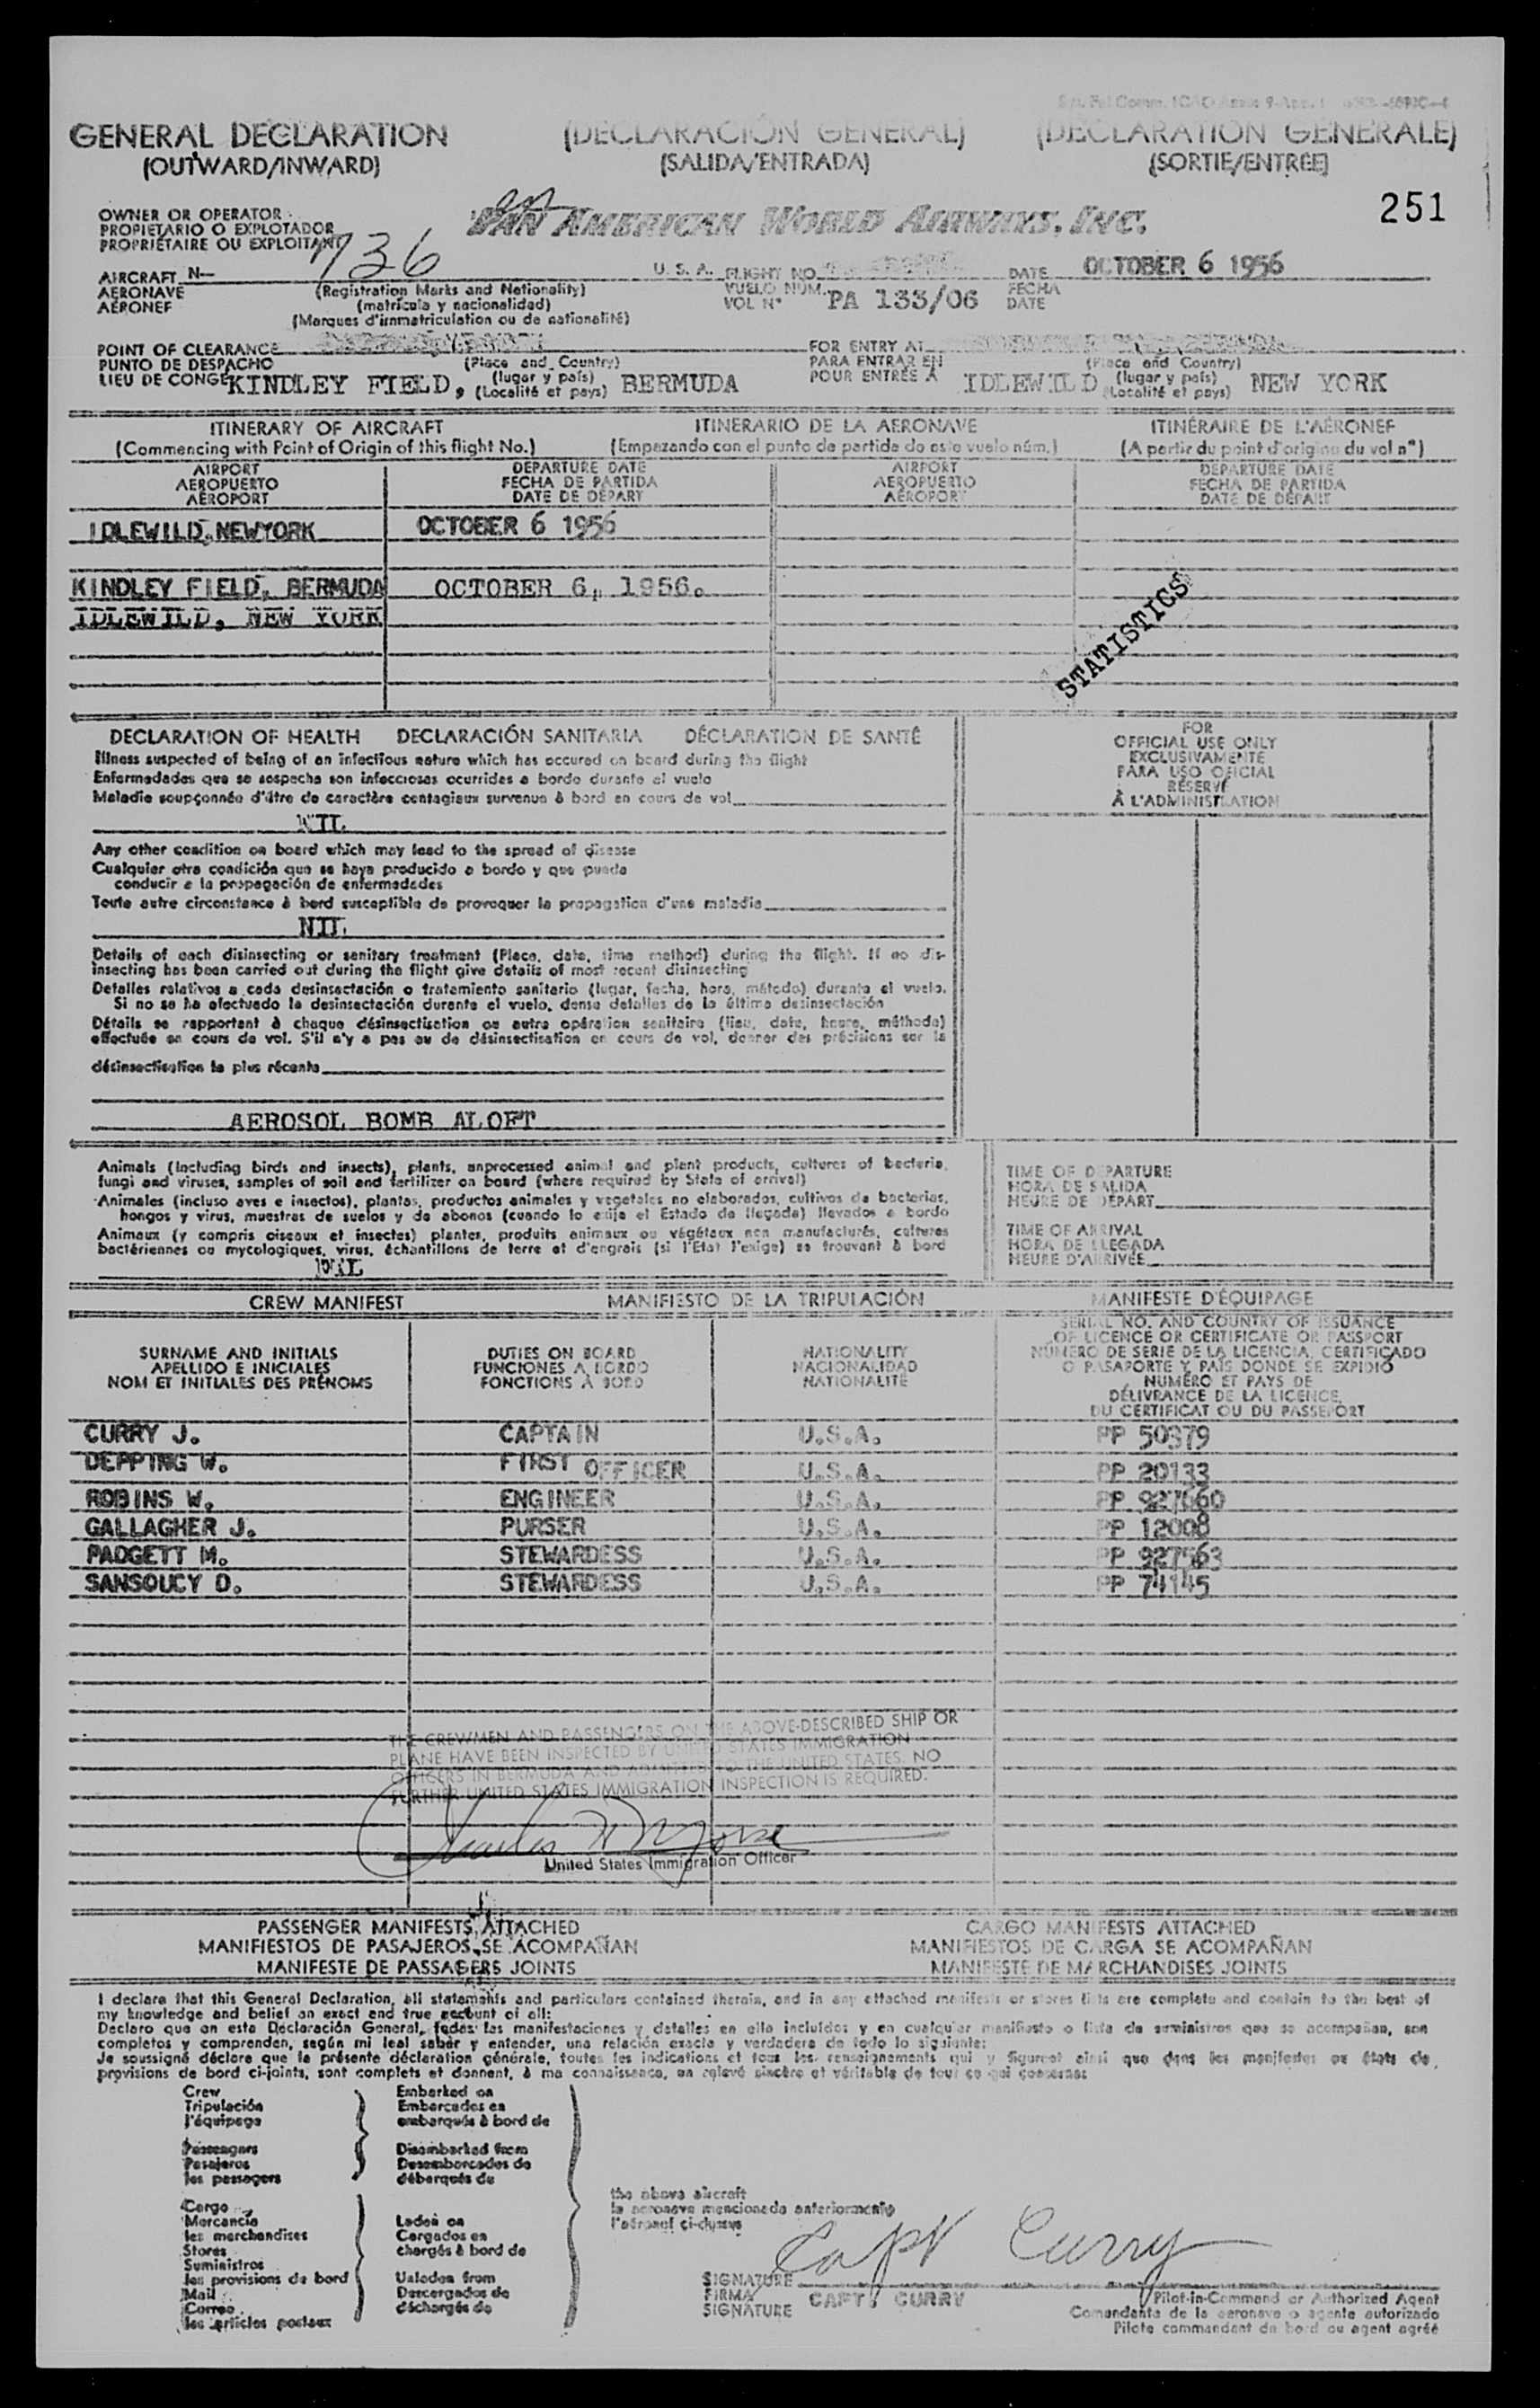 GENERAL DECLARATION (DECLARACIÓN GENERAL) (DECLARATION GENERALE)
(OUTWARD/INWARD) (SALIDA/ENTRADA) (SORTIE/ENTRÉE)
251
OWNER OR OPERATOR
PROPIETARIO O EXPLOTADOR
PROPRIÉTAIRE OU EXPLOITANT
PAN AMERICAN WORLD AIRWAYS, INC.
AIRCRAFT N- 736 U. S. A. FLIGHT NO. DATE OCTOBER 6 1956
AERONAVE (Registration Marks and Nationality) VUELO NUM. PA 133/06 FECHA
AÉRONEF (matrícula y nacionalidad) VOL N° DATE
(Marques d'immatriculation ou de nationalité)
POINT OF CLEARANCE FOR ENTRY AT
PUNTO DE DESPACHO (Place and Country) PARA ENTRAR EN (Place and Country)
LIEU DE CONGÉ KINDLEY FIELD, (lugar y país) BERMUDA POUR ENTRÉE À IDLEWILD (lugar y país) NEW YORK
(Localité et pays) (Localité et pays)
ITINERARY OF AIRCRAFT ITINERARIO DE LA AERONAVE ITINÉRAIRE DE L'AÉRONEF
(Commencing with Point of Origin of this flight No.) (Empezando con el punto de partida de este vuelo núm.) (A partir du point d'origine du vol n°)
AIRPORT DEPARTURE DATE AIRPORT DEPARTURE DATE
AEROPUERTO FECHA DE PARTIDA AEROPUERTO FECHA DE PARTIDA
AÉROPORT DATE DE DÉPART AÉROPORT DATE DE DÉPART
IDLEWILD, NEWYORK OCTOBER 6 1956
KINDLEY FIELD, BERMUDA OCTOBER 6, 1956.
IDLEWILD, NEW YORK
STATISTICS
DECLARATION OF HEALTH DECLARACIÓN SANITARIA DÉCLARATION DE SANTÉ
Illness suspected of being of an infectious nature which has occured on board during the flight
Enfermedades que se sospecha son infecciosas ocurridas a bordo durante el vuelo
Maladie soupçonnée d'être de caractère contagieux survenue à bord en cours de vol
NIL
Any other condition on board which may lead to the spread of disease
Cualquier otra condición que se haya producido a bordo y que pueda
conducir a la propagación de enfermedades
Toute autre circonstance à bord susceptible de provoquer la propagation d'une maladie
NIL
Details of each disinsecting or sanitary treatment (Place, date, time method) during the flight. If no dis-
insecting has been carried out during the flight give details of most recent disinsecting
Detalles relativos a cada desinsectación o tratamiento sanitario (lugar, fecha, hora, método) durante el vuelo.
Si no se ha efectuado la desinsectación durante el vuelo, dense detalles de la última desinsectación
Détails se rapportant à chaque désinsectisation ou autre opération sanitaire (lieu, date, heure, méthode)
effectuée en cours de vol. S'il n'y a pas eu de désinsectisation en cours de vol, donner des précisions sur la
désinsectisation la plus récente
AEROSOL BOMB ALOFT
FOR
OFFICIAL USE ONLY
EXCLUSIVAMENTE
PARA USO OFICIAL
RÉSERVÉ
À L'ADMINISTRATION
Animals (Including birds and insects), plants, unprocessed animal and plant products, cultures of bacteria,
fungi and viruses, samples of soil and fertilizer on board (where required by State of arrival)
Animales (incluso aves e insectos), plantas, productos animales y vegetales no elaborados, cultivos de bacterias,
hongos y virus, muestras de suelos y de abonos (cuando lo exija el Estado de llegada) llevados a bordo
Animaux (y compris oiseaux et insectes) plantes, produits animaux ou végétaux non manufacturés, cultures
bactériennes ou mycologiques, virus, échantillons de terre et d'engrais (si l'Etat l'exige) se trouvant à bord
NIL
TIME OF DEPARTURE
HORA DE SALIDA
HEURE DE DÉPART
TIME OF ARRIVAL
HORA DE LLEGADA
HEURE D'ARRIVÉE
CREW MANIFEST MANIFIESTO DE LA TRIPULACIÓN MANIFESTE D'ÉQUIPAGE
SURNAME AND INITIALS
APELLIDO E INICIALES
NOM ET INITIALES DES PRÉNOMS
DUTIES ON BOARD
FUNCIONES A BORDO
FONCTIONS À BORD
NATIONALITY
NACIONALIDAD
NATIONALITÉ
SERIAL NO. AND COUNTRY OF ISSUANCE
OF LICENCE OR CERTIFICATE OR PASSPORT
NÚMERO DE SERIE DE LA LICENCIA, CERTIFICADO
O PASAPORTE Y PAÍS DONDE SE EXPIDIÓ
NUMÉRO ET PAYS DE
DÉLIVRANCE DE LA LICENCE,
DU CERTIFICAT OU DU PASSEPORT
CURRY J. CAPTAIN U.S.A. PP 50379
DEPPING W. FIRST OFFICER U.S.A. PP 20133
ROBINS W. ENGINEER U.S.A. PP 927660
GALLAGHER J. PURSER U.S.A. PP 12008
PADGETT M. STEWARDESS U.S.A. PP 927563
SANSOUCY D. STEWARDESS U.S.A. PP 74145
THE CREWMEN AND PASSENGERS ON THE ABOVE-DESCRIBED SHIP OR
PLANE HAVE BEEN INSPECTED BY UNITED STATES IMMIGRATION
OFFICERS IN BERMUDA AND ADMITTED TO THE UNITED STATES. NO
FURTHER UNITED STATES IMMIGRATION INSPECTION IS REQUIRED.
United States Immigration Officer
PASSENGER MANIFESTS ATTACHED CARGO MANIFESTS ATTACHED
MANIFIESTOS DE PASAJEROS SE ACOMPAÑAN MANIFIESTOS DE CARGA SE ACOMPAÑAN
MANIFESTE DE PASSAGERS JOINTS MANIFESTE DE MARCHANDISES JOINTS
I declare that this General Declaration, all statements and particulars contained therein, and in any attached manifests or stores lists are complete and contain to the best of
my knowledge and belief an exact and true account of all:
Declaro que en esta Declaración General, todas las manifestaciones y detalles en ella incluídos y en cualquier manifiesto o lista de suministros que se acompañan, son
completos y comprenden, según mi leal saber y entender, una relación exacta y verdadera de todo lo siguiente:
Je soussigné déclare que la présente déclaration générale, toutes les indications et tous les renseignements qui y figurent ainsi que dans les manifestes ou états de
provisions de bord ci-joints, sont complets et donnent, à ma connaissance, un relevé sincère et véritable de tout ce qui concerne:
Crew Embarked on
Tripulación Embarcados en
l'équipage embarqués à bord de
Passengers Disembarked from
Pasajeros Desembarcados de
les passagers débarqués de
the above aircraft
la aeronave mencionada anteriormente
l'aéronef ci-dessus
Cargo
Mercancía Laden on
les marchandises Cargados en
Stores chargés à bord de
Suministros
les provisions de bord Unladen from
Mail Descargados de
Correo déchargés de
les articles postaux
Capt Curry
SIGNATURE
FIRMA CAPT. CURRY
SIGNATURE
Pilot-in-Command or Authorized Agent
Comandante de la aeronave o agente autorizado
Pilote commandant de bord ou agent agréé